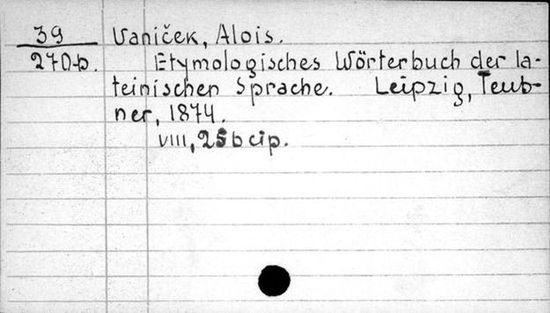 39 Vaniček, Alois.
270b. Etymologisches Wörterbuch der la-
teinischen Sprache. Leipzig, Teub-
ner, 1874.
VIII, 256 cтр.